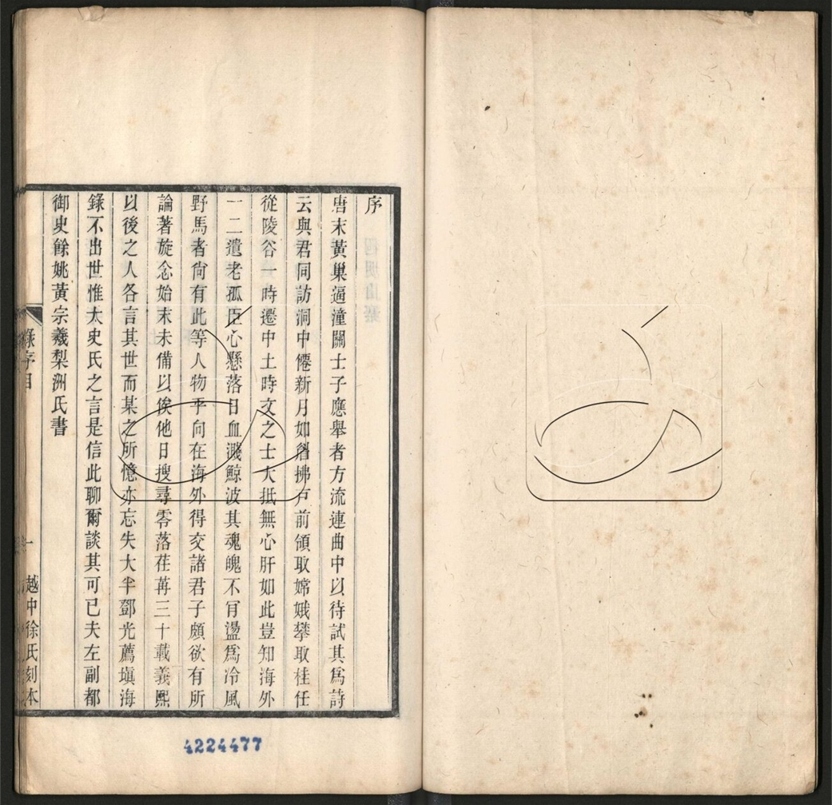 序
唐末黃巢逼潼關士子應舉者方流連曲中以待試其爲詩
云與君同訪洞中僊新月如眉拂戶前領取嫦娥攀取桂任
從陵谷一時遷中土時文之士大抵無心肝如此豈知海外
一二遺老孤臣心懸落日血濺鯨波其魂魄不肓盪爲冷風
野馬者尙有此等人物乎向在海外得交諸君子頗欲有所
論著旋念始末未備以俟他日搜尋零落荏苒三十載義熙
以後之人各言其世而某之所憶亦忘失大半鄧光薦塡海
錄不出世惟太史氏之言是信此聊爾談其可已夫左副都
御史餘姚黃宗羲梨洲氏書
錄序目
一
越中徐氏刻本
4224477